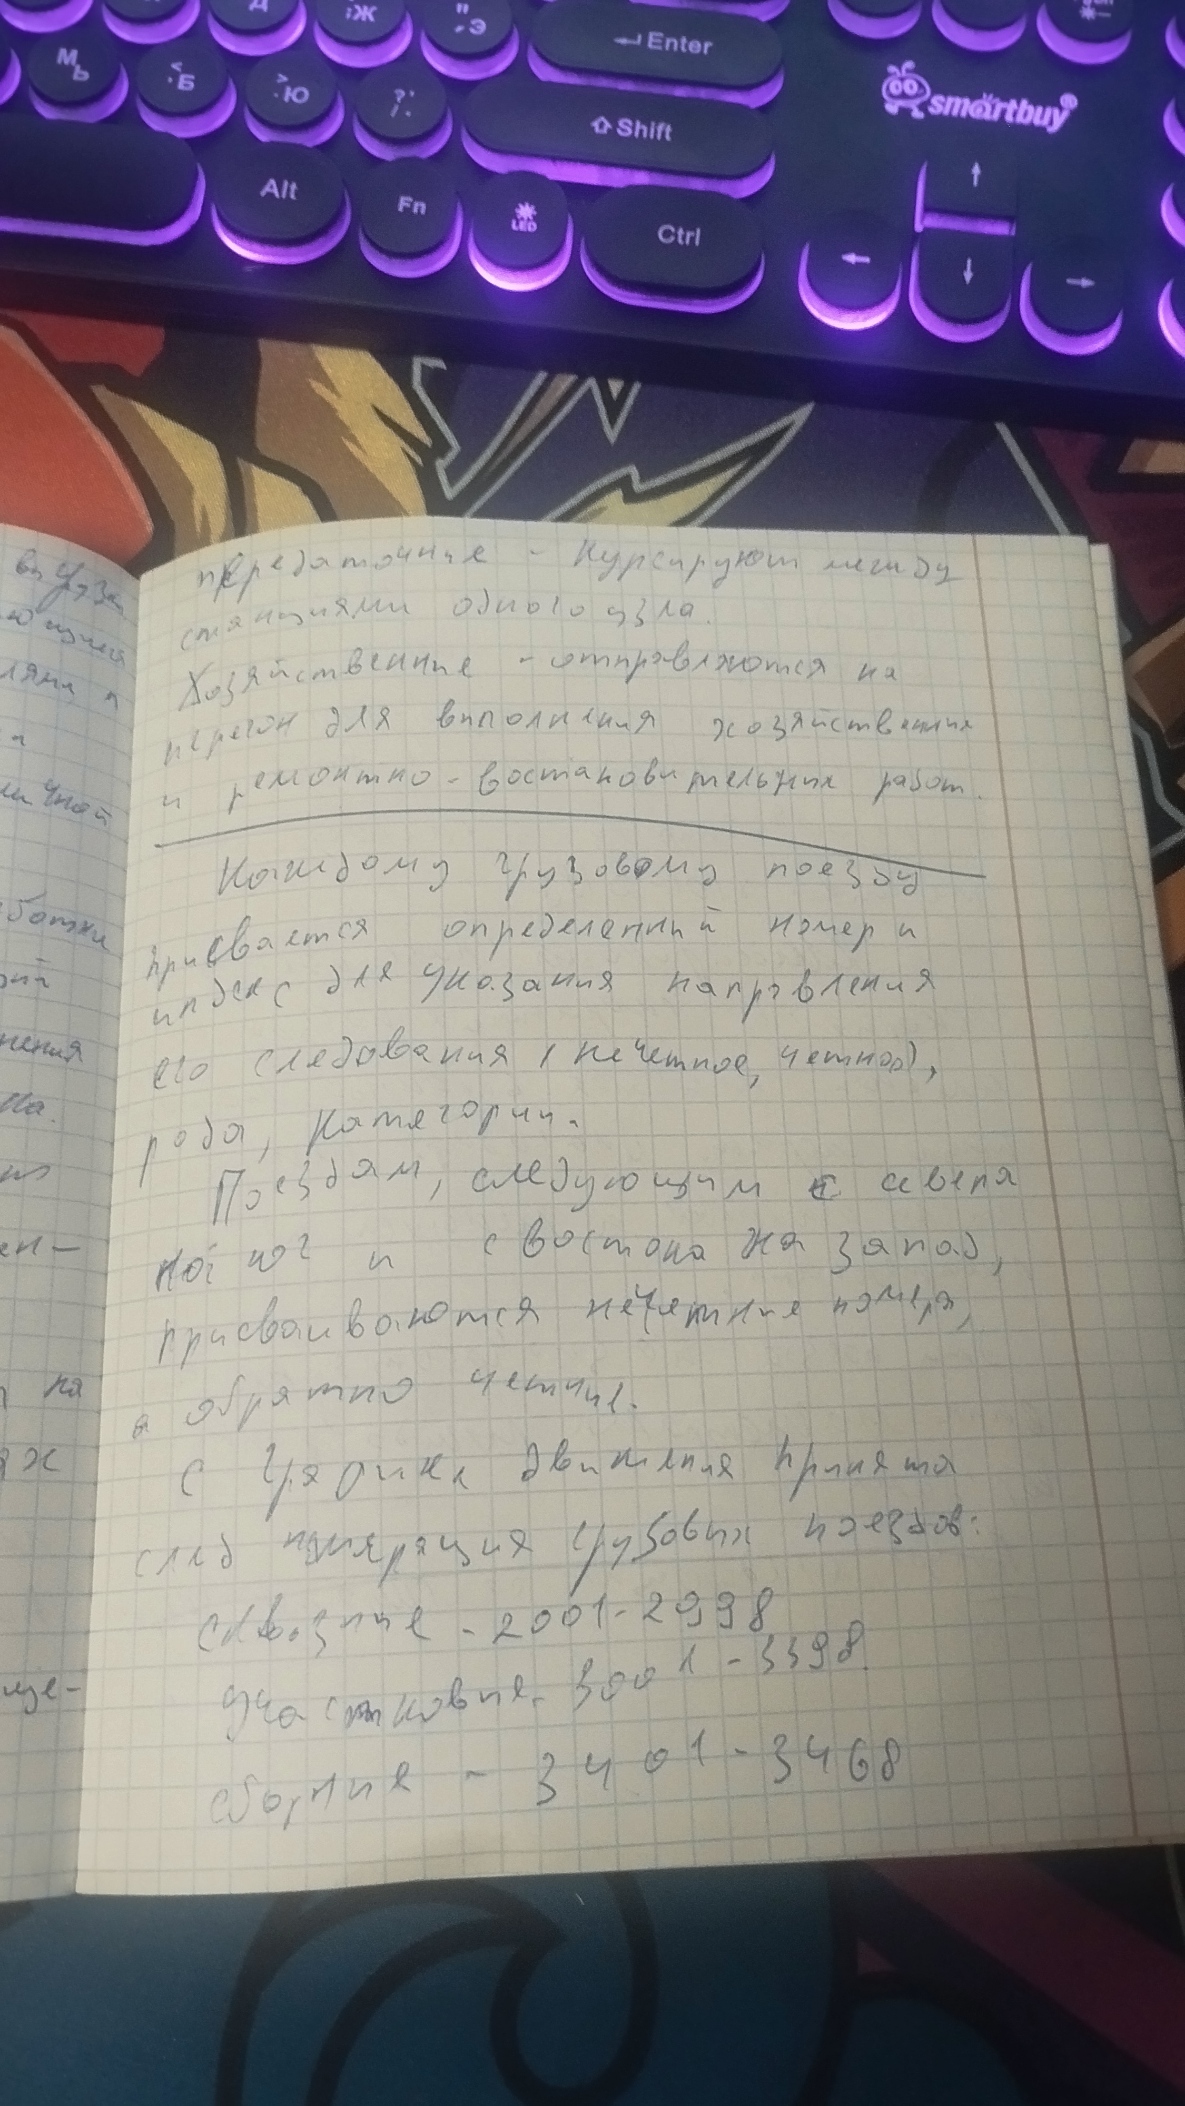 Д
Ж
Э
Enter
М Ь
< Б
> Ю
?
Shift
smartbuy
Alt
Fn
LED
Ctrl
передаточние - Курсируют между
станциями одного узла.
Хозяйственние - отправляются на
перегон для выполнения хозяйственния
и ремонтно-востановительних работ.
Каждому грузовому поезду
присвается определенний номер и
индекс для указания направления
его следования (нечетное, четное),
рода, категории.
Поездам, следующим с севера
на юг и с востока на запад,
присваиваются нечетние номера,
а обратно четние.
С графике движения принята
след нумерация грузових поездов:
сквозние - 2001-2998
участковие - 3001-3398
сборние - 3401-3468